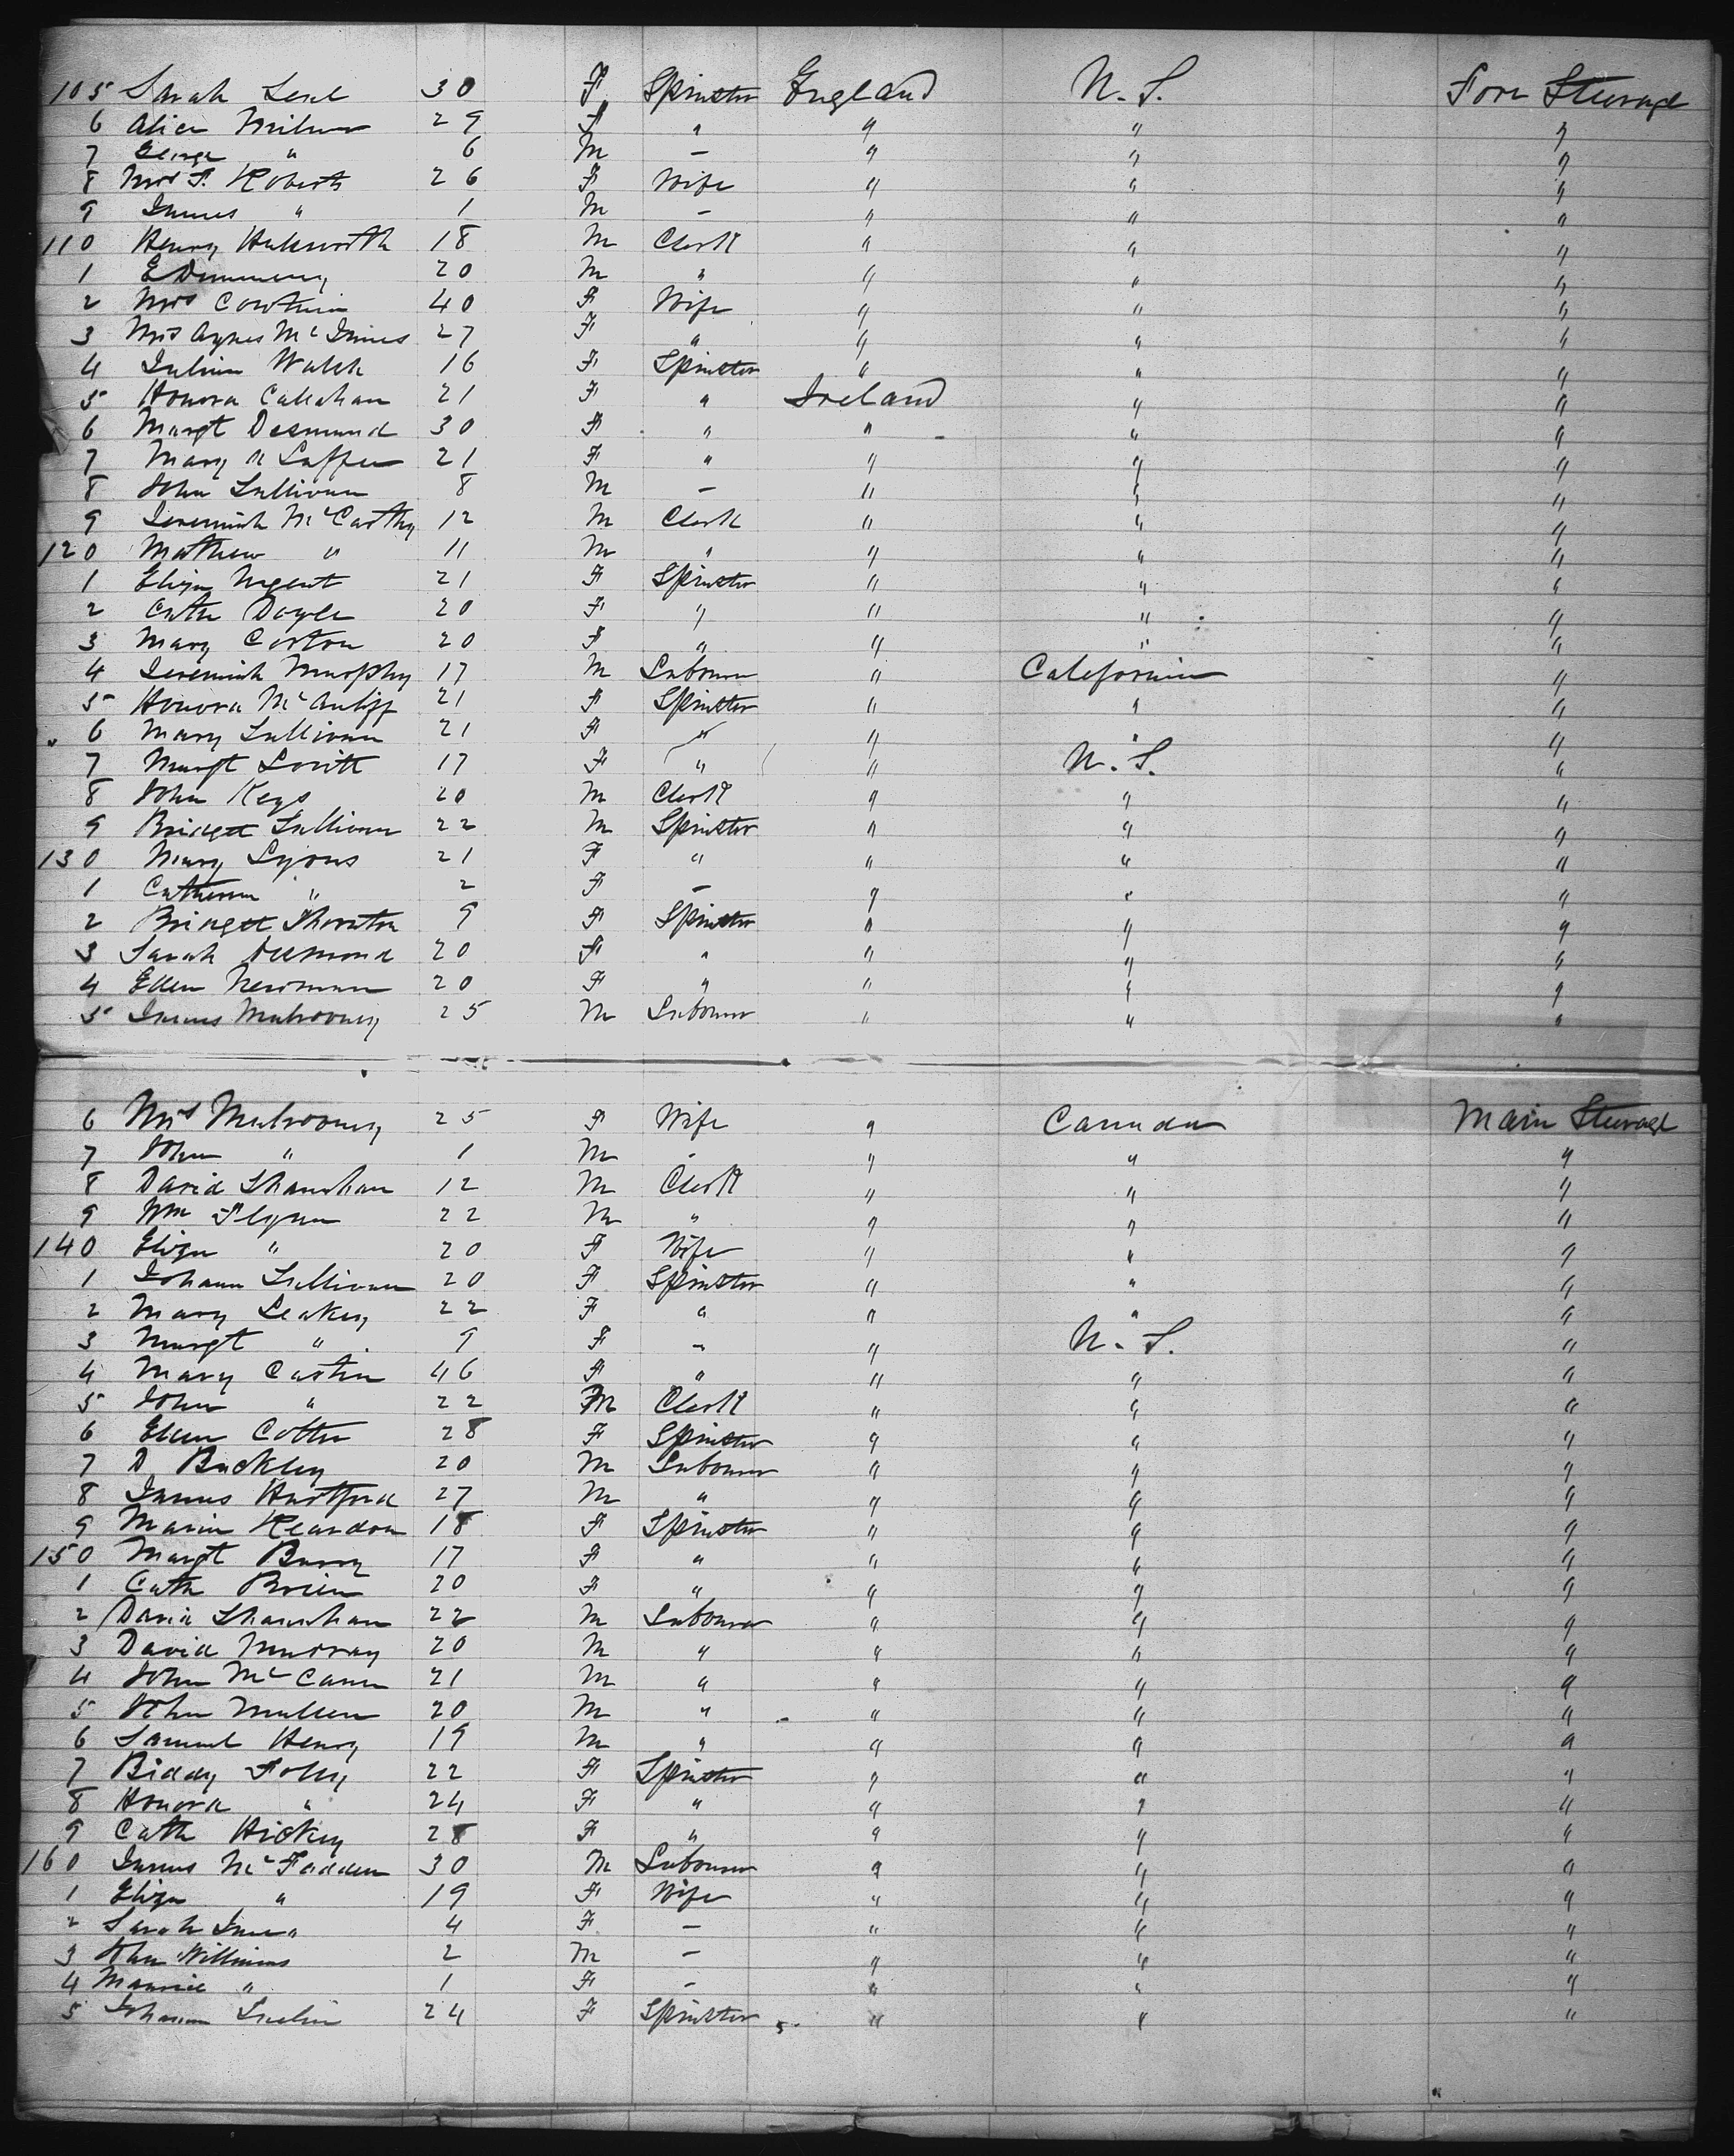 105 Sarah 30 F Spinster England U.S. Fore Steerage
6 Alice Milner 29 F " " " "
7 George " 6 M – " " "
8 Mrs F. Roberts 26 F Wife " " "
9 James " 1 M – " " "
110 Henry 18 M Clerk " " "
1 E 20 M " " " "
2 Mrs 40 F Wife " " "
3 Mrs Agnes McInnes 27 F " " " "
4 Walsh 16 F Spinster " " "
5 Honora Callahan 21 F " Ireland " "
6 Margt Desmund 30 F " " " "
7 Mary 21 F " " " "
8 John Sullivan 8 M – " " "
9 Jeremiah McCarthy 12 M Clerk " " "
120 Mathew " 11 M " " " "
1 Eliza Nugent 21 F Spinster " " "
2 Cath Doyle 20 F " " " "
3 Mary 20 F " " " "
4 Jeremiah Murphy 17 M Labourer " California "
5 Honora McAuliff 21 F Spinster " " "
6 Mary Sullivan 21 F " " " "
7 Margt 17 F " " U.S. "
8 John Keys 20 M Clerk " " "
9 Bridget Sullivan 22 M Spinster " " "
130 Mary Lyons 21 F " " " "
1 Catherine " 2 F – " " "
2 Bridget Thornton 9 F Spinster " " "
3 Sarah Desmond 20 F " " " "
4 Ellen Newman 20 F " " " "
5 James Mulrooney 25 M Labourer " " "
6 Mrs Mulrooney 25 F Wife " Canada Main Steerage
7 John " 1 M – " " "
8 David Shanahan 12 M Clerk " " "
9 Wm Flynn 22 M " " " "
140 Eliza " 20 F Wife " " "
1 Johana Sullivan 20 F Spinster " " "
2 Mary Leakey 22 F " " " "
3 Margt " 9 F – " U.S. "
4 Mary 46 F " " " "
5 John " 22 M Clerk " " "
6 Ellen Cotter 28 F Spinster " " "
7 D Buckley 20 M Labourer " " "
8 James Hartford 27 M " " " "
9 Maria Reardon 18 F Spinster " " "
150 Margt Barry 17 F " " " "
1 Cath Brien 20 F " " " "
2 David Shanahan 22 M Labourer " " "
3 David Murray 20 M " " " "
4 John McCann 21 M " " " "
5 John Mullen 20 M " " " "
6 Samuel Henry 19 M " " " "
7 Biddy Foley 22 F Spinster " " "
8 Honora " 24 F " " " "
9 Cath Hickey 28 F " " " "
160 James McFadden 30 M Labourer " " "
1 Eliza " 19 F Wife " " "
2 Sarah Jane " 4 F – " " "
3 John Williams 2 M – " " "
4 " 1 F – " " "
5 Johanna 24 F Spinster " " "